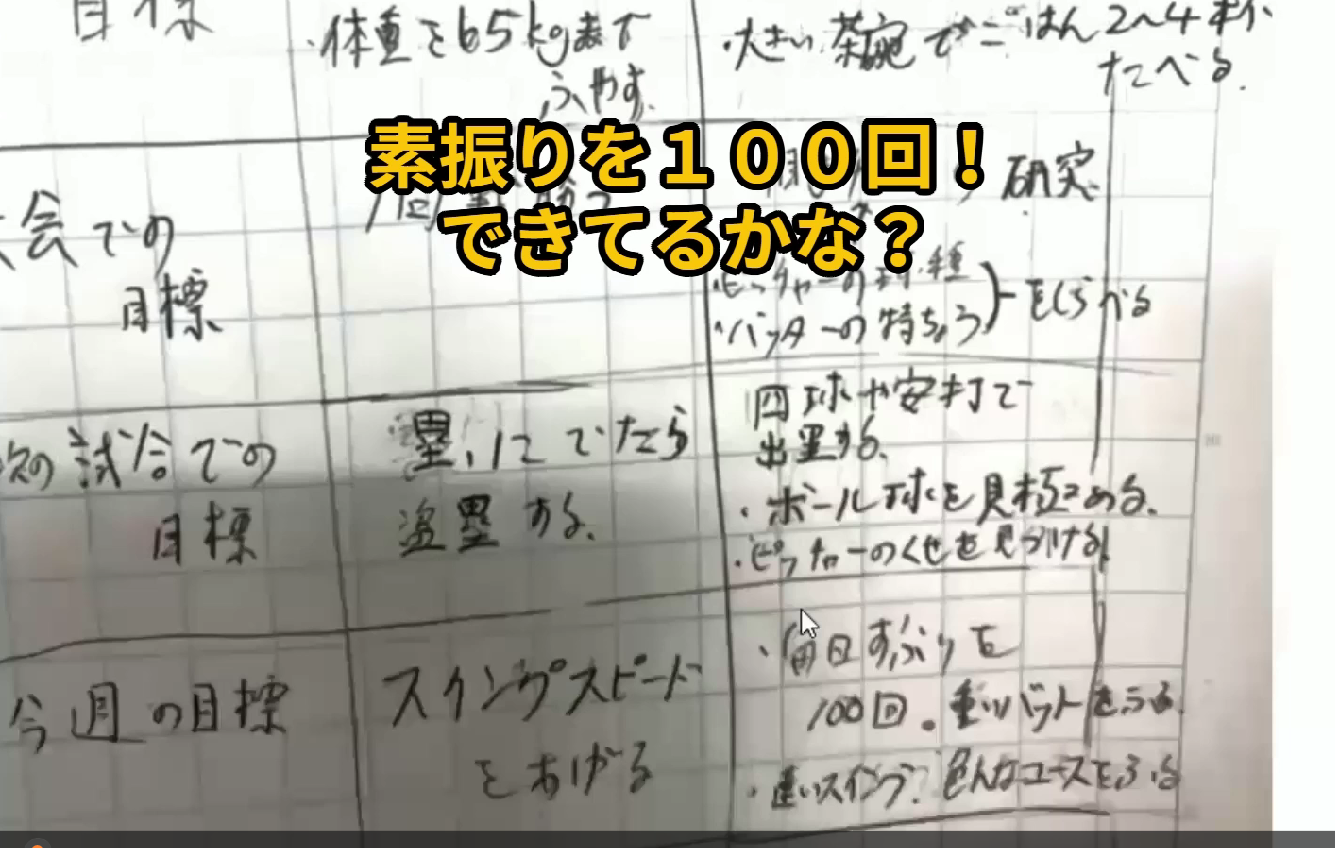 目標
・体重を65kgまで
ふやす.
・大きい茶碗でごはん2〜4杯
たべる.
素振りを１００回！
できてるかな？
会での
目標
研究
・ピッチャーの球種
・バッターの特ちょう
をしらべる
次の試合での
目標
塁にでたら
盗塁する.
四球や安打で
出塁する.
・ボール球を見極める.
・ピッチャーのくせを見つける
今週の目標
スイングスピード
をあげる
・毎日すぶりを
100回。重いバットをふる.
・速いスイング.色んなコースをふる